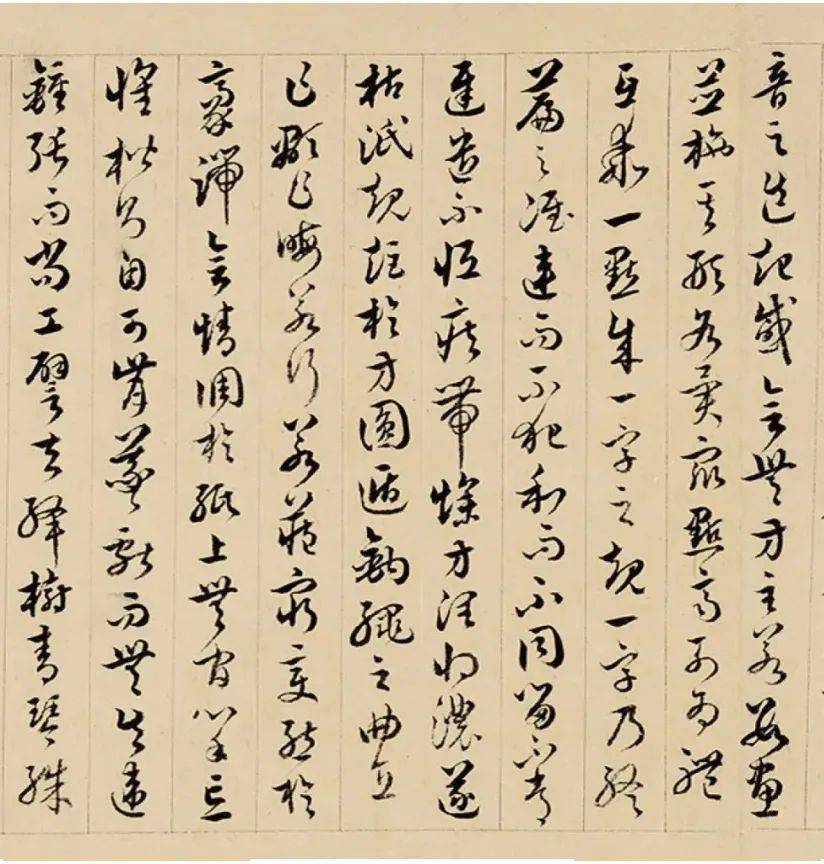 音之迭起感會無方至若數畫
並施其形各異衆點齊列爲體
互乖一點成一字之規一字乃終
篇之准違而不犯和而不同留不常
遲遣不恒疾帶燥方潤將濃遂
枯泯規矩於方圓遁鉤繩之曲直
乍顯乍晦若行若藏窮變態於
豪端合情調於紙上無間心手忘
懷楷則自可背羲獻而無失違
鍾張而尚工譬夫絳樹青琴殊